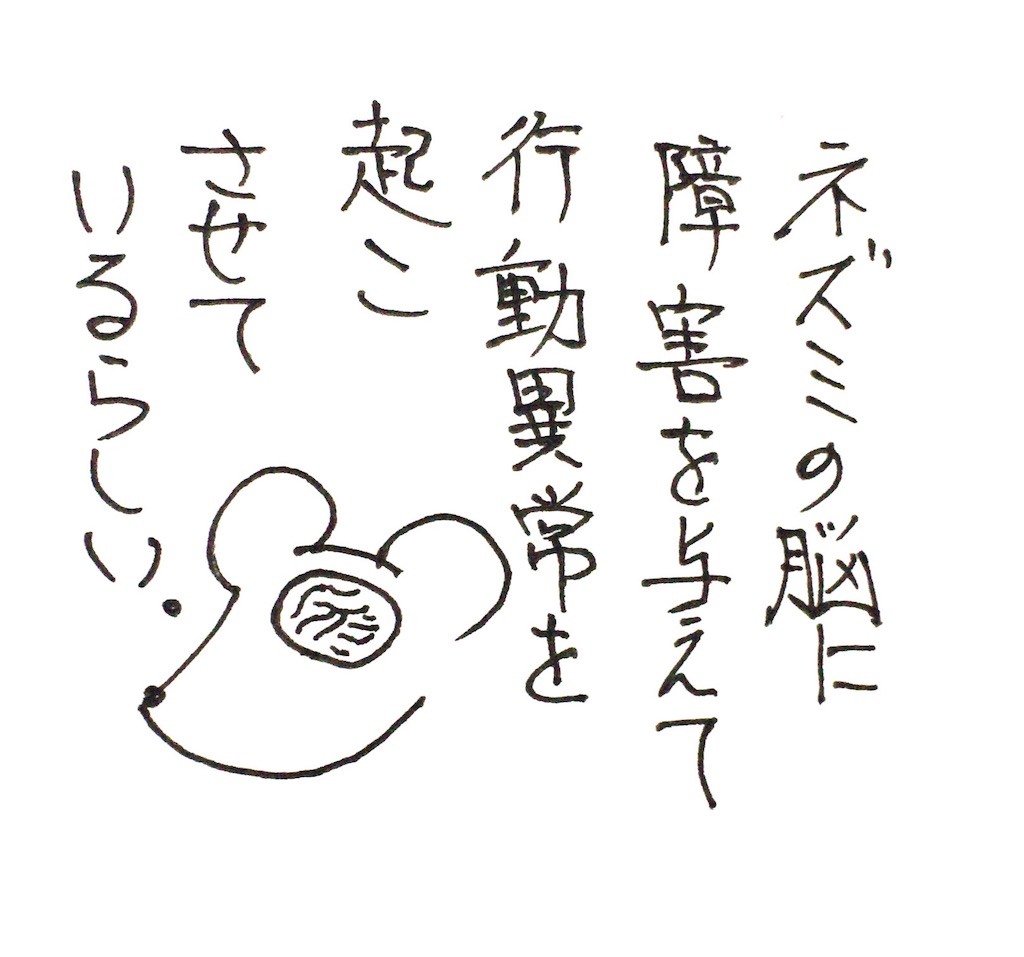 ネズミの脳に
障害を与えて
行動異常を
起こ
させて
いるらしい.